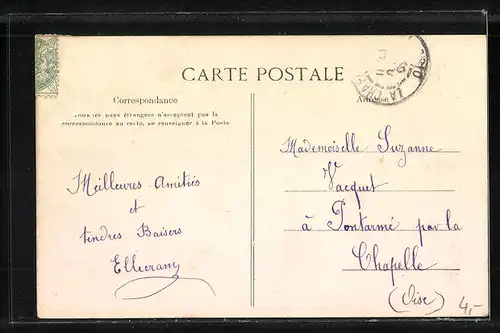 CARTE POSTALE
Correspondance
Tous les pays étrangers n'acceptent pas la
correspondance au recto, se renseigner à la Poste
Adresse
LA CHAP
Meilleures Amitiés
et
tendres Baisers
Mademoiselle Suzanne
Vacquet
à Pontarmé par la
Chapelle
(Oise)
4,-